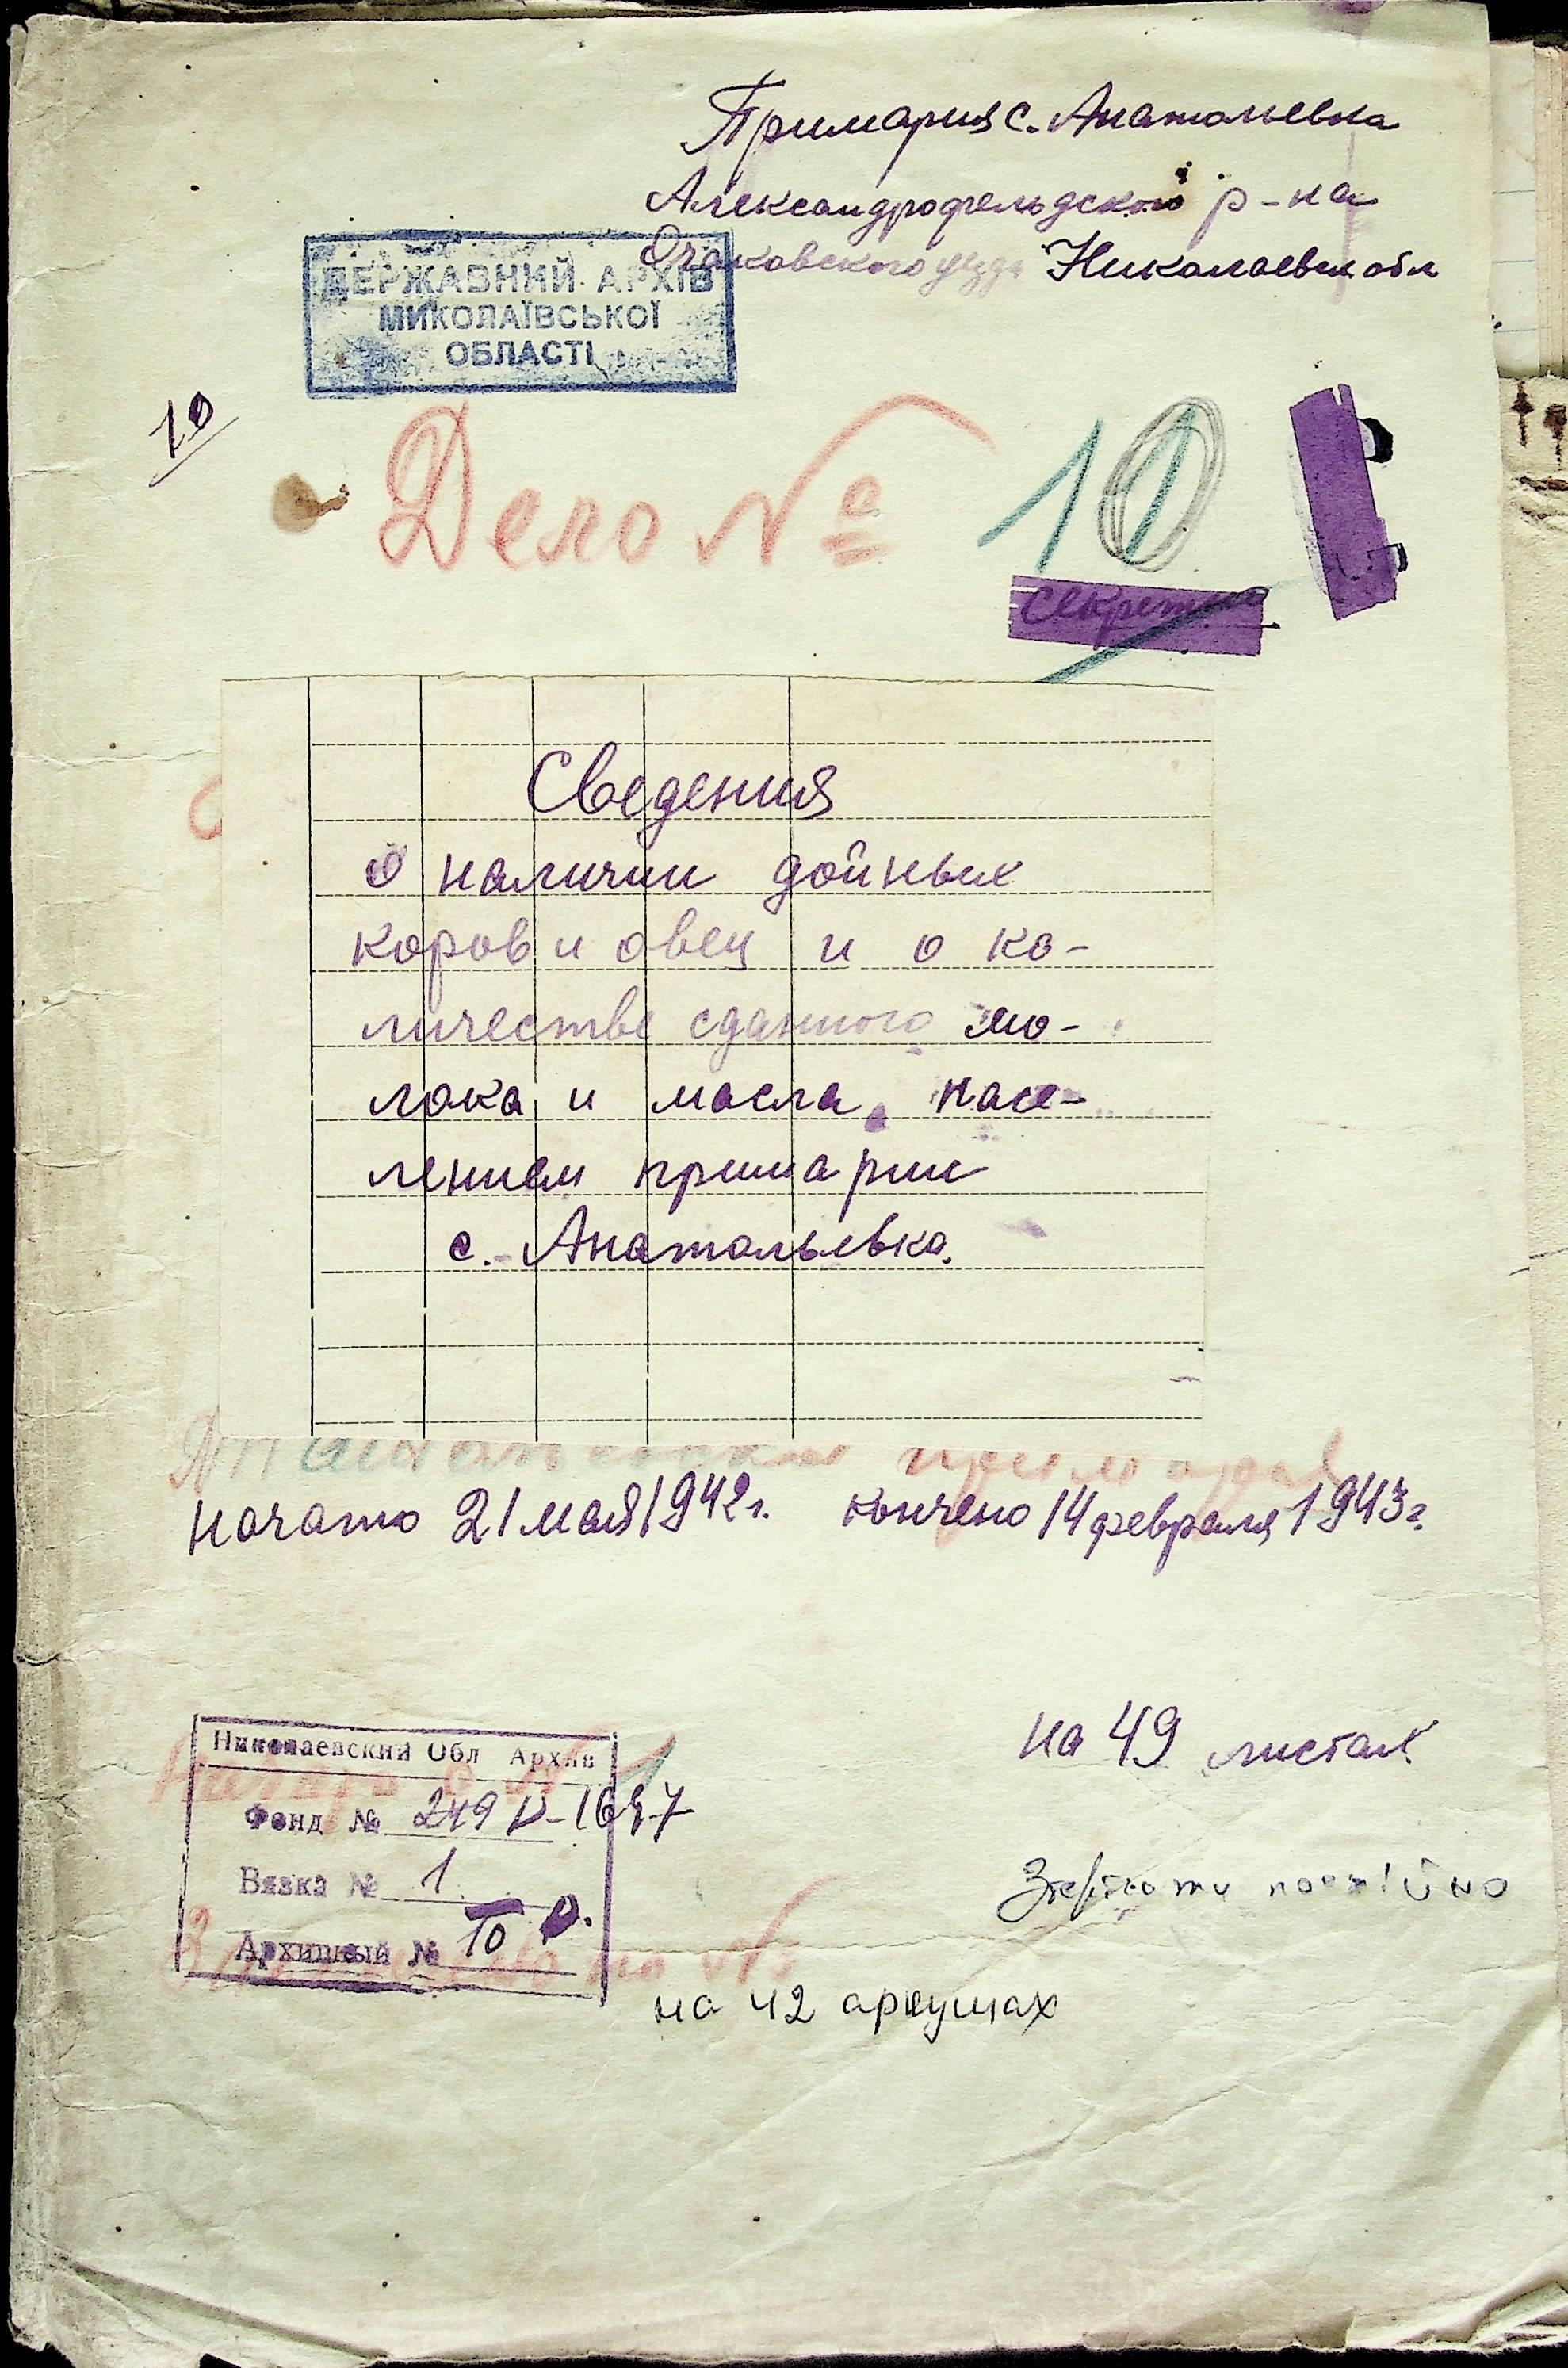 Примария с. Анатольевка
Александрофельдского р-на
Очаковского уезда Николаевск обл
ДЕРЖАВНИЙ АРХІВ
МИКОЛАЇВСЬКОЇ
ОБЛАСТІ
10
Дело № 10
секретно
Сведения
о наличии дойных
коров и овец и о ко-
личестве сданного мо-
лока и масла насе-
лением примарии
с. Анатольевка.
примария
начато 21 мая 1942 г. кончено 14 февраля 1943 г.
на 49 листах
Николаевский Обл Архив
Фонд № 249
Вязка № 1
Архивный № 10
Зберігати постійно
на 42 аркушах